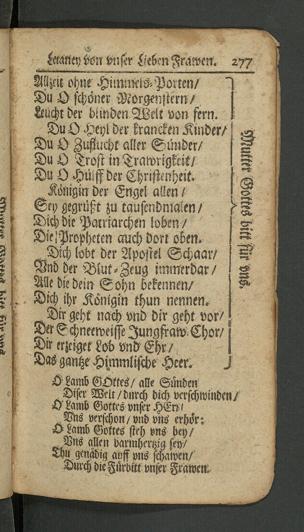 Letaney von vnser Lieben Frawen. 277
Allzeit ohne Himmels-Porten/
Du O schöner Morgenstern/
Leucht der blinden Welt von fern.
Du O Heyl der krancken Kinder/
Du O Zuflucht aller Sünder/
Du O Trost in Trawrigkeit/
Du O Hülff der Christenheit.
Königin der Engel allen/
Sey gegrüßt zu tausendmalen/
Dich die Patriarchen loben/
Die Propheten auch dort oben.
Dich lobt der Apostel Schaar/
Vnd der Blut-Zeug immerdar/
Alle die dein Sohn bekennen/
Dich ihr Königin thun nennen.
Dir geht nach vnd dir geht vor/
Der Schneeweisse Jungfraw-Chor/
Dir erzeiget Lob vnd Ehr/
Das gantze Himmlische Heer.
Mutter Gottes bitt für vns.
O Lamb GOttes/ alle Sünden
Diser Welt/ durch dich verschwinden/
O Lamb Gottes vnser HErr/
Vns verschon/ vnd vns erhör:
O Lamb Gottes steh vns bey/
Vns allen barmhertzig sey/
Thu genädig auff vns schawen/
Durch die Fürbitt vnser Frawen.